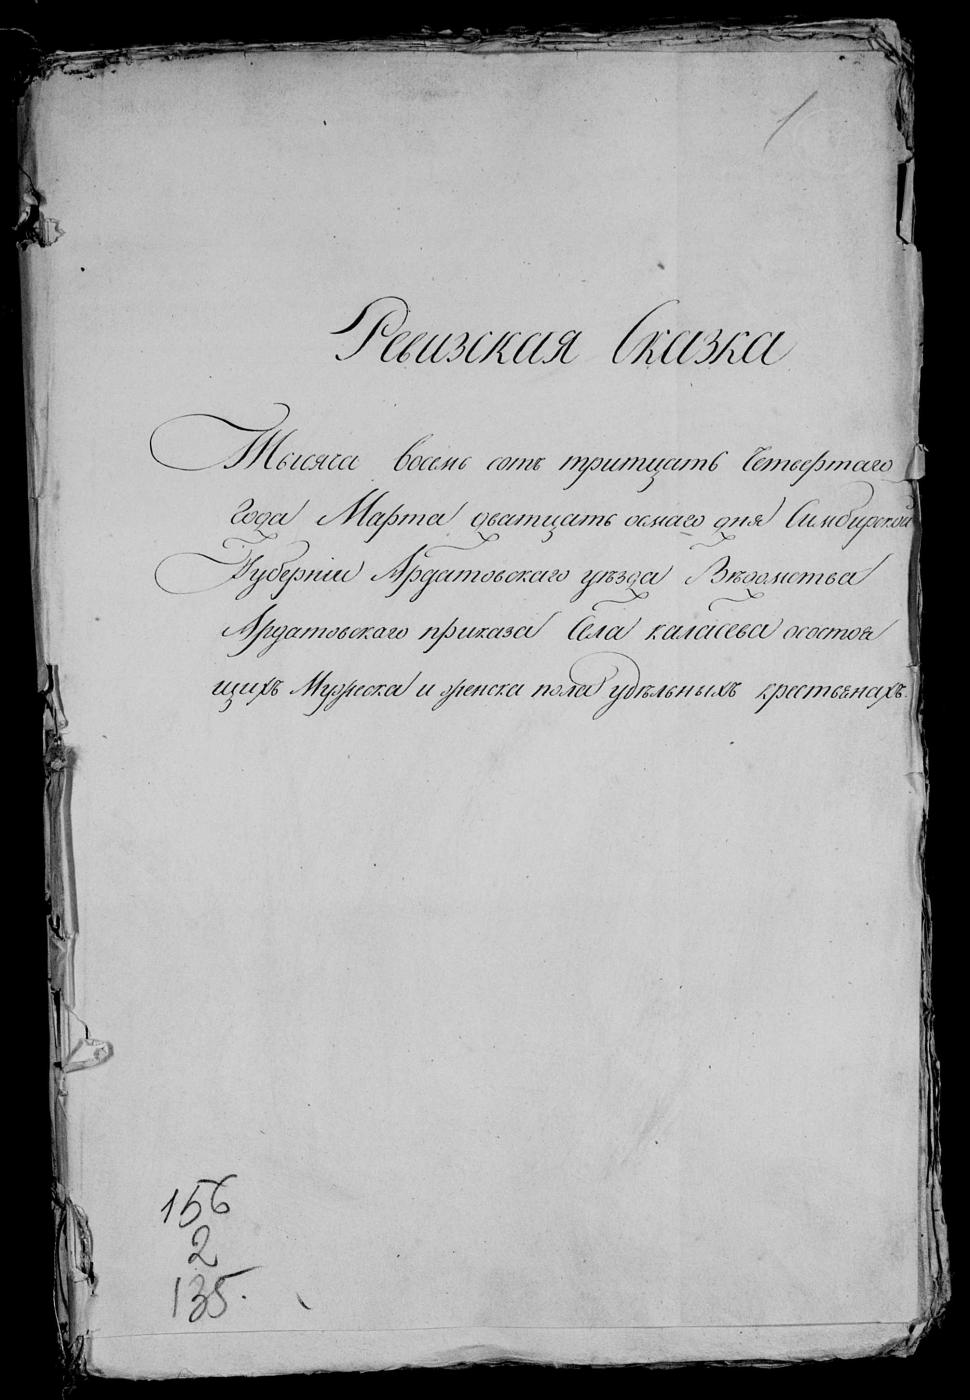 1
Ревизская Сказка
Тысяча восемь сотъ тритцать Четвертаго
года Марта дватцать осмаго дня Симбирской
Губерніи Ардатовскаго уѣзда Вѣдомства
Ардатовскаго приказа Села каласева осостоя
щихъ Мужеска и женска пола удѣльныхъ крестьенахъ.
156
2
135.